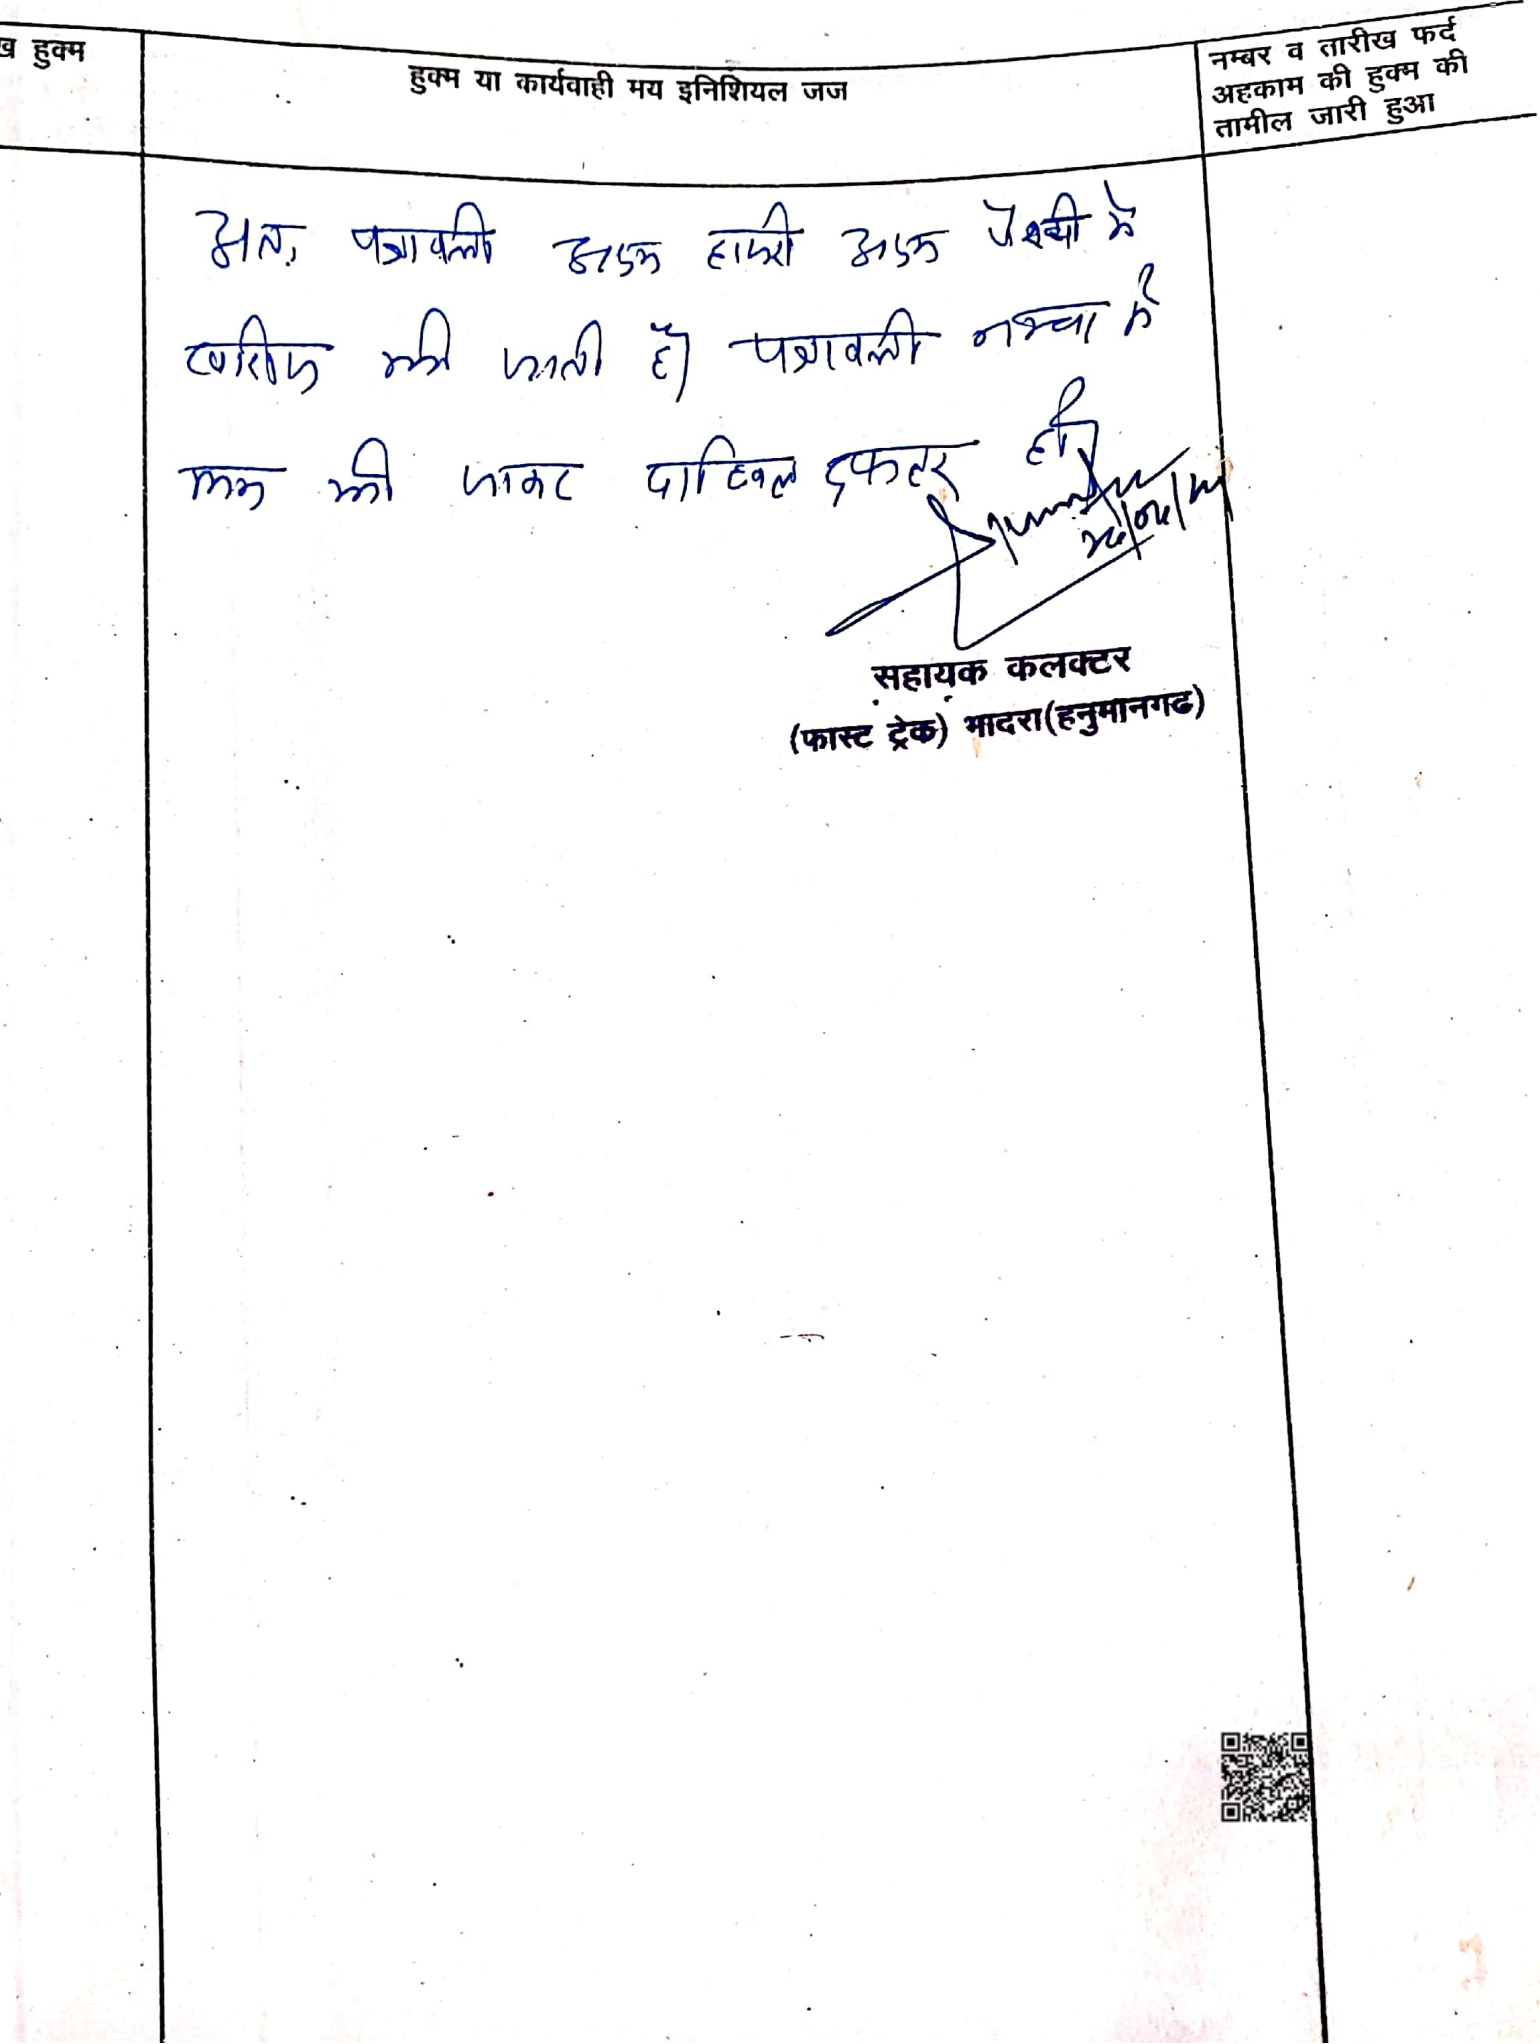 ख हुक्म
हुक्म या कार्यवाही मय इनिशियल जज
नम्बर व तारीख फर्द
अहकाम की हुक्म की
तामील जारी हुआ
अतः पत्रावली अदम हाजरी अदम पैरवी में
खारिज की जाती है। पत्रावली नम्बर से
कम की जाकर दाखिल दफतर हो।
सहायक कलक्टर
(फास्ट ट्रेक) भादरा(हनुमानगढ)